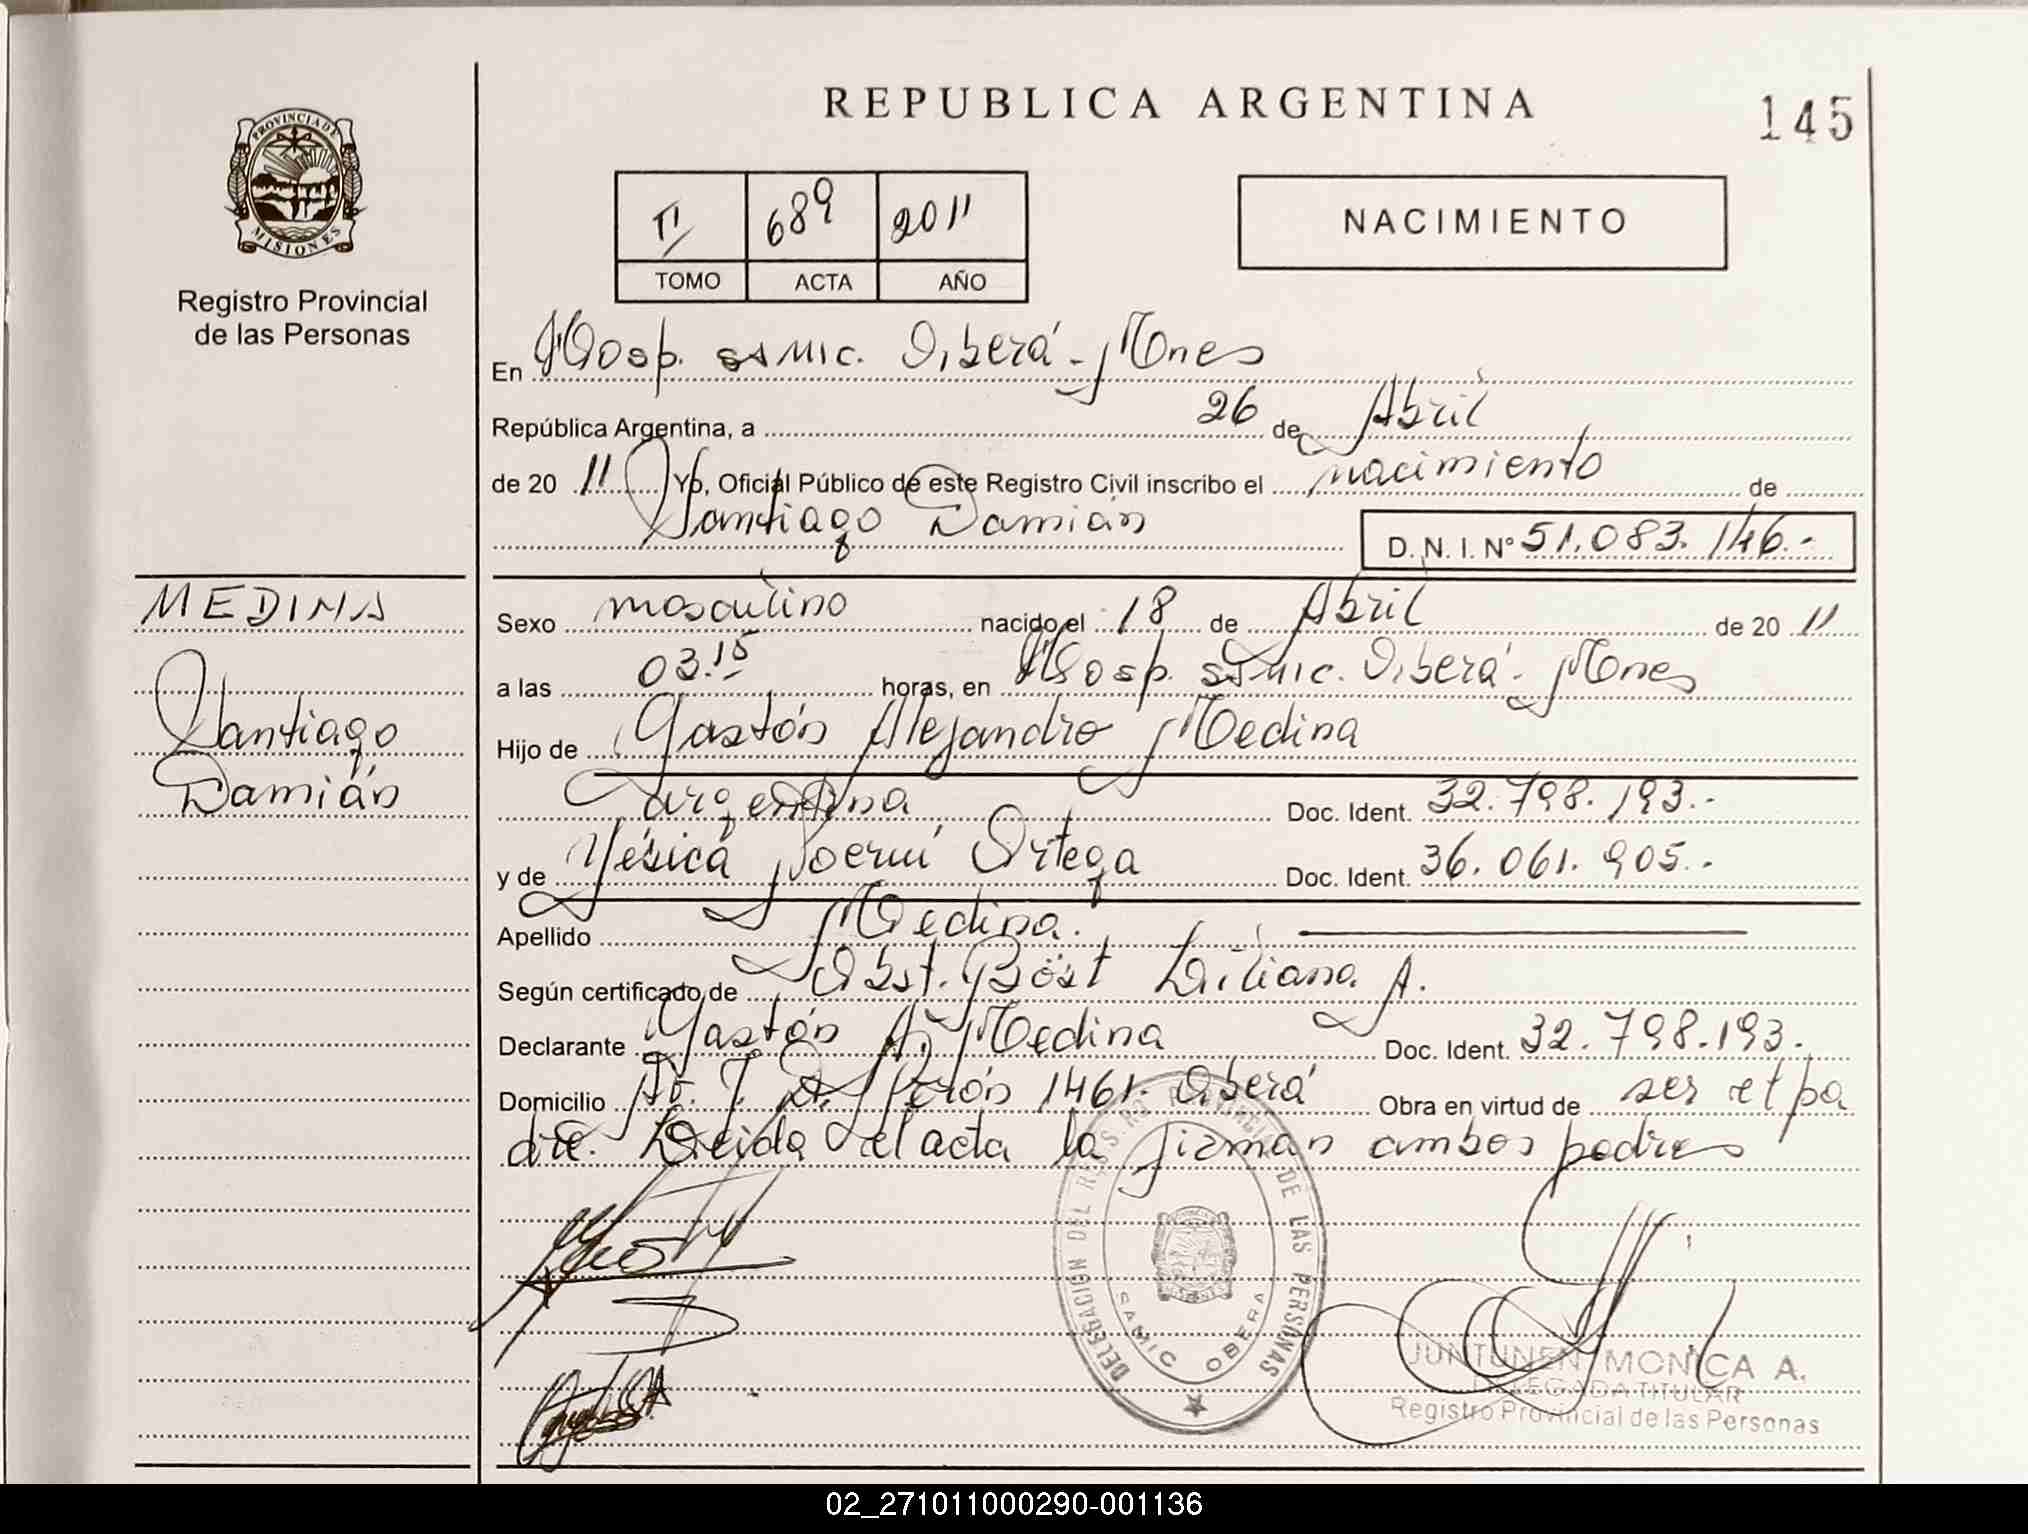 REPUBLICA ARGENTINA
145
PROVINCIA DE MISIONES
Registro Provincial
de las Personas
II 689 2011
TOMO ACTA AÑO
NACIMIENTO
En Hosp. SAMIC. Oberá - Mnes
República Argentina, a 26 de Abril
de 20 11 Yo, Oficial Público de este Registro Civil inscribo el nacimiento de
Santiago Damián D. N. I. Nº 51.083.146.-
MEDINA
Santiago
Damián
Sexo masculino nacido el 18 de Abril de 20 11
a las 03.15 horas, en Hosp. SAMIC. Oberá - Mnes
Hijo de Gastón Alejandro Medina
argentina Doc. Ident. 32.798.193.-
y de Yésica Noemí Ortega Doc. Ident. 36.061.905.-
Apellido Medina.
Según certificado de Obst. Böst Liliana A.
Declarante Gastón A. Medina Doc. Ident. 32.798.193.
Domicilio Av. J. D. Perón 1461. Oberá Obra en virtud de ser el pa
dre. Leida el acta la firman ambos padres
DELEGACION DEL REGISTRO PROVINCIAL DE LAS PERSONAS
SAMIC OBERA
JUNTUNEN MONICA A.
DELEGADA TITULAR
Registro Provincial de las Personas
02_271011000290-001136